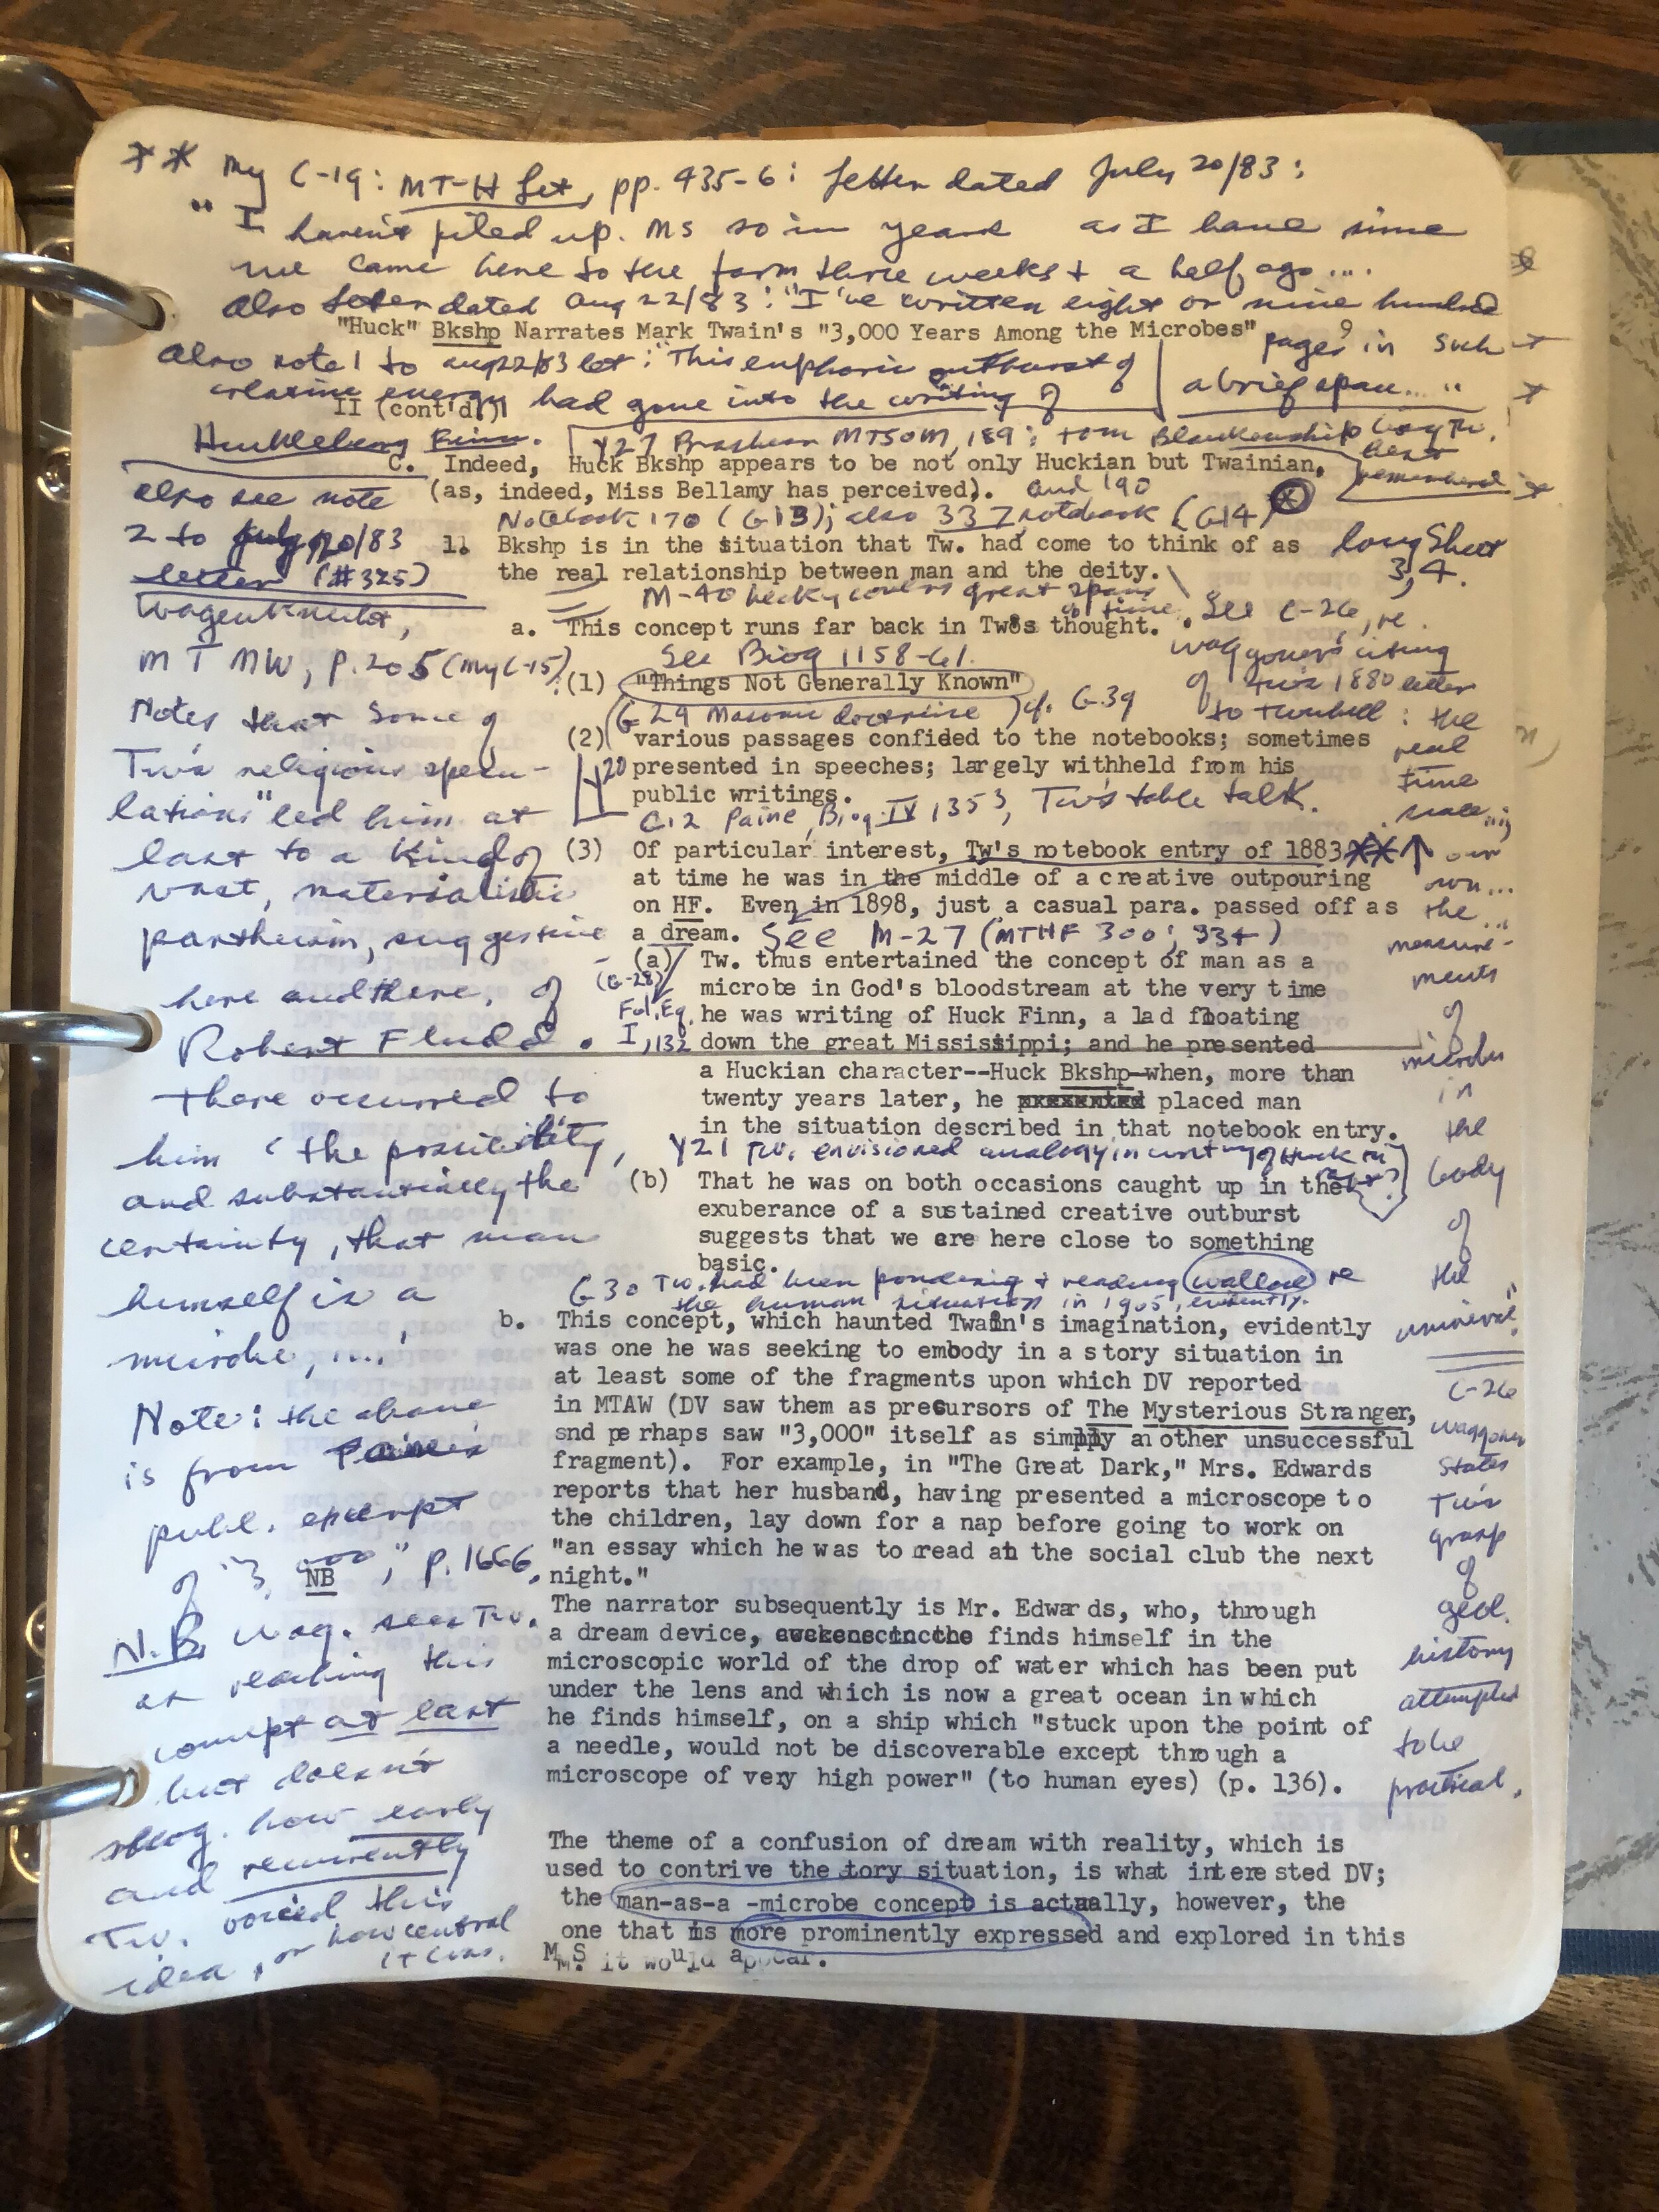 ** My C-19: MT-H Let, pp. 435-6: letter dated July 20/83:
"I haven't piled up MS so in years as I have since
we came here to the farm three weeks + a half ago....
Also letter dated Aug 22/83: "I've written eight or nine hundred
pages in such
a brief span...."
"Huck" Bkshp Narrates Mark Twain's "3,000 Years Among the Microbes"
Also note 1 to Aug 22/83 let: "This euphoric outburst of
creative energy had gone into the writing of
Huckleberry Finn.
II (cont'd)
Y27 Brashear MTSOM, 189: Tom Blankenship boy Tw.
best
remembered
C. Indeed, Huck Bkshp appears to be not only Huckian but Twainian,
(as, indeed, Miss Bellamy has perceived). and 190
Notebook 170 (G13); also 337 notebook (G14) *
long Sheet
3, 4.
1. Bkshp is in the situation that Tw. had come to think of as
the real relationship between man and the deity.
M-40 great span
of time.
a. This concept runs far back in Tw8s thought.
See Biog 1158-61.
(1) "Things Not Generally Known"
G29 Masonic doctrine cf. G39
(2) various passages confided to the notebooks; sometimes
Y20 presented in speeches; largely withheld from his
public writings.
C12 Paine, Biog. IV 1353, Tw's table talk.
(3) Of particular interest, Tw's notebook entry of 1883 ** ↑
at time he was in the middle of a creative outpouring
on HF. Even in 1898, just a casual para. passed off as
a dream. See M-27 (MTHF 300; 334)
(G-28)
Fol. Eq.
I, 132
(a) Tw. thus entertained the concept of man as a
microbe in God's bloodstream at the very time
he was writing of Huck Finn, a lad floating
down the great Mississippi; and he presented
a Huckian character--Huck Bkshp--when, more than
twenty years later, he presented placed man
in the situation described in that notebook entry.
Y21 Tw. envisioned analogy in writing of Huck
(b) That he was on both occasions caught up in the
exuberance of a sustained creative outburst
suggests that we are here close to something
basic.
G30 Tw. had been pondering + reading Wallace re
the human situation in 1905, evidently.
b. This concept, which haunted Twain's imagination, evidently
was one he was seeking to embody in a story situation in
at least some of the fragments upon which DV reported
in MTAW (DV saw them as precursors of The Mysterious Stranger,
snd perhaps saw "3,000" itself as simply another unsuccessful
fragment). For example, in "The Great Dark," Mrs. Edwards
reports that her husband, having presented a microscope to
the children, lay down for a nap before going to work on
"an essay which he was to read at the social club the next
night."
The narrator subsequently is Mr. Edwards, who, through
a dream device, finds himself in the
microscopic world of the drop of water which has been put
under the lens and which is now a great ocean in which
he finds himself, on a ship which "stuck upon the point of
a needle, would not be discoverable except through a
microscope of very high power" (to human eyes) (p. 136).
The theme of a confusion of dream with reality, which is
used to contrive the tory situation, is what interested DV;
the man-as-a -microbe concept is actually, however, the
one that is more prominently expressed and explored in this
M.S. it would appear.
also see note
2 to July 20/83
letter (#325)
Wagenknecht,
MTMW, p. 205 (my C-15)
Notes that some of
Tw's religious specu-
lations "led him at
last to a kind of
vast, materialistic
pantheism, suggestive
here and there, of
Robert Fludd.
There occurred to
him 'the possibility,
and substantially the
certainty, that man
himself is a
microbe, ...'
Note: the above
is from Paine's
publ. excerpt
of "3,000," p. 1666.
NB
N.B. Wag. sees Tw.
as reaching this
concept at last
but doesn't
recog. how early
and recurrently
Tw. voiced this
idea, or how central
it was.
See C-26, re
Waggoner's citing
of Tw's 1880 letter
to Twichell: the
real
time
our
own...
the...
measure-
ments
of
microbes
in
the
body
of
the
universe"
C-26
Waggoner
States
Tw's
grasp
of
geol.
history
attempted
to be
practical.